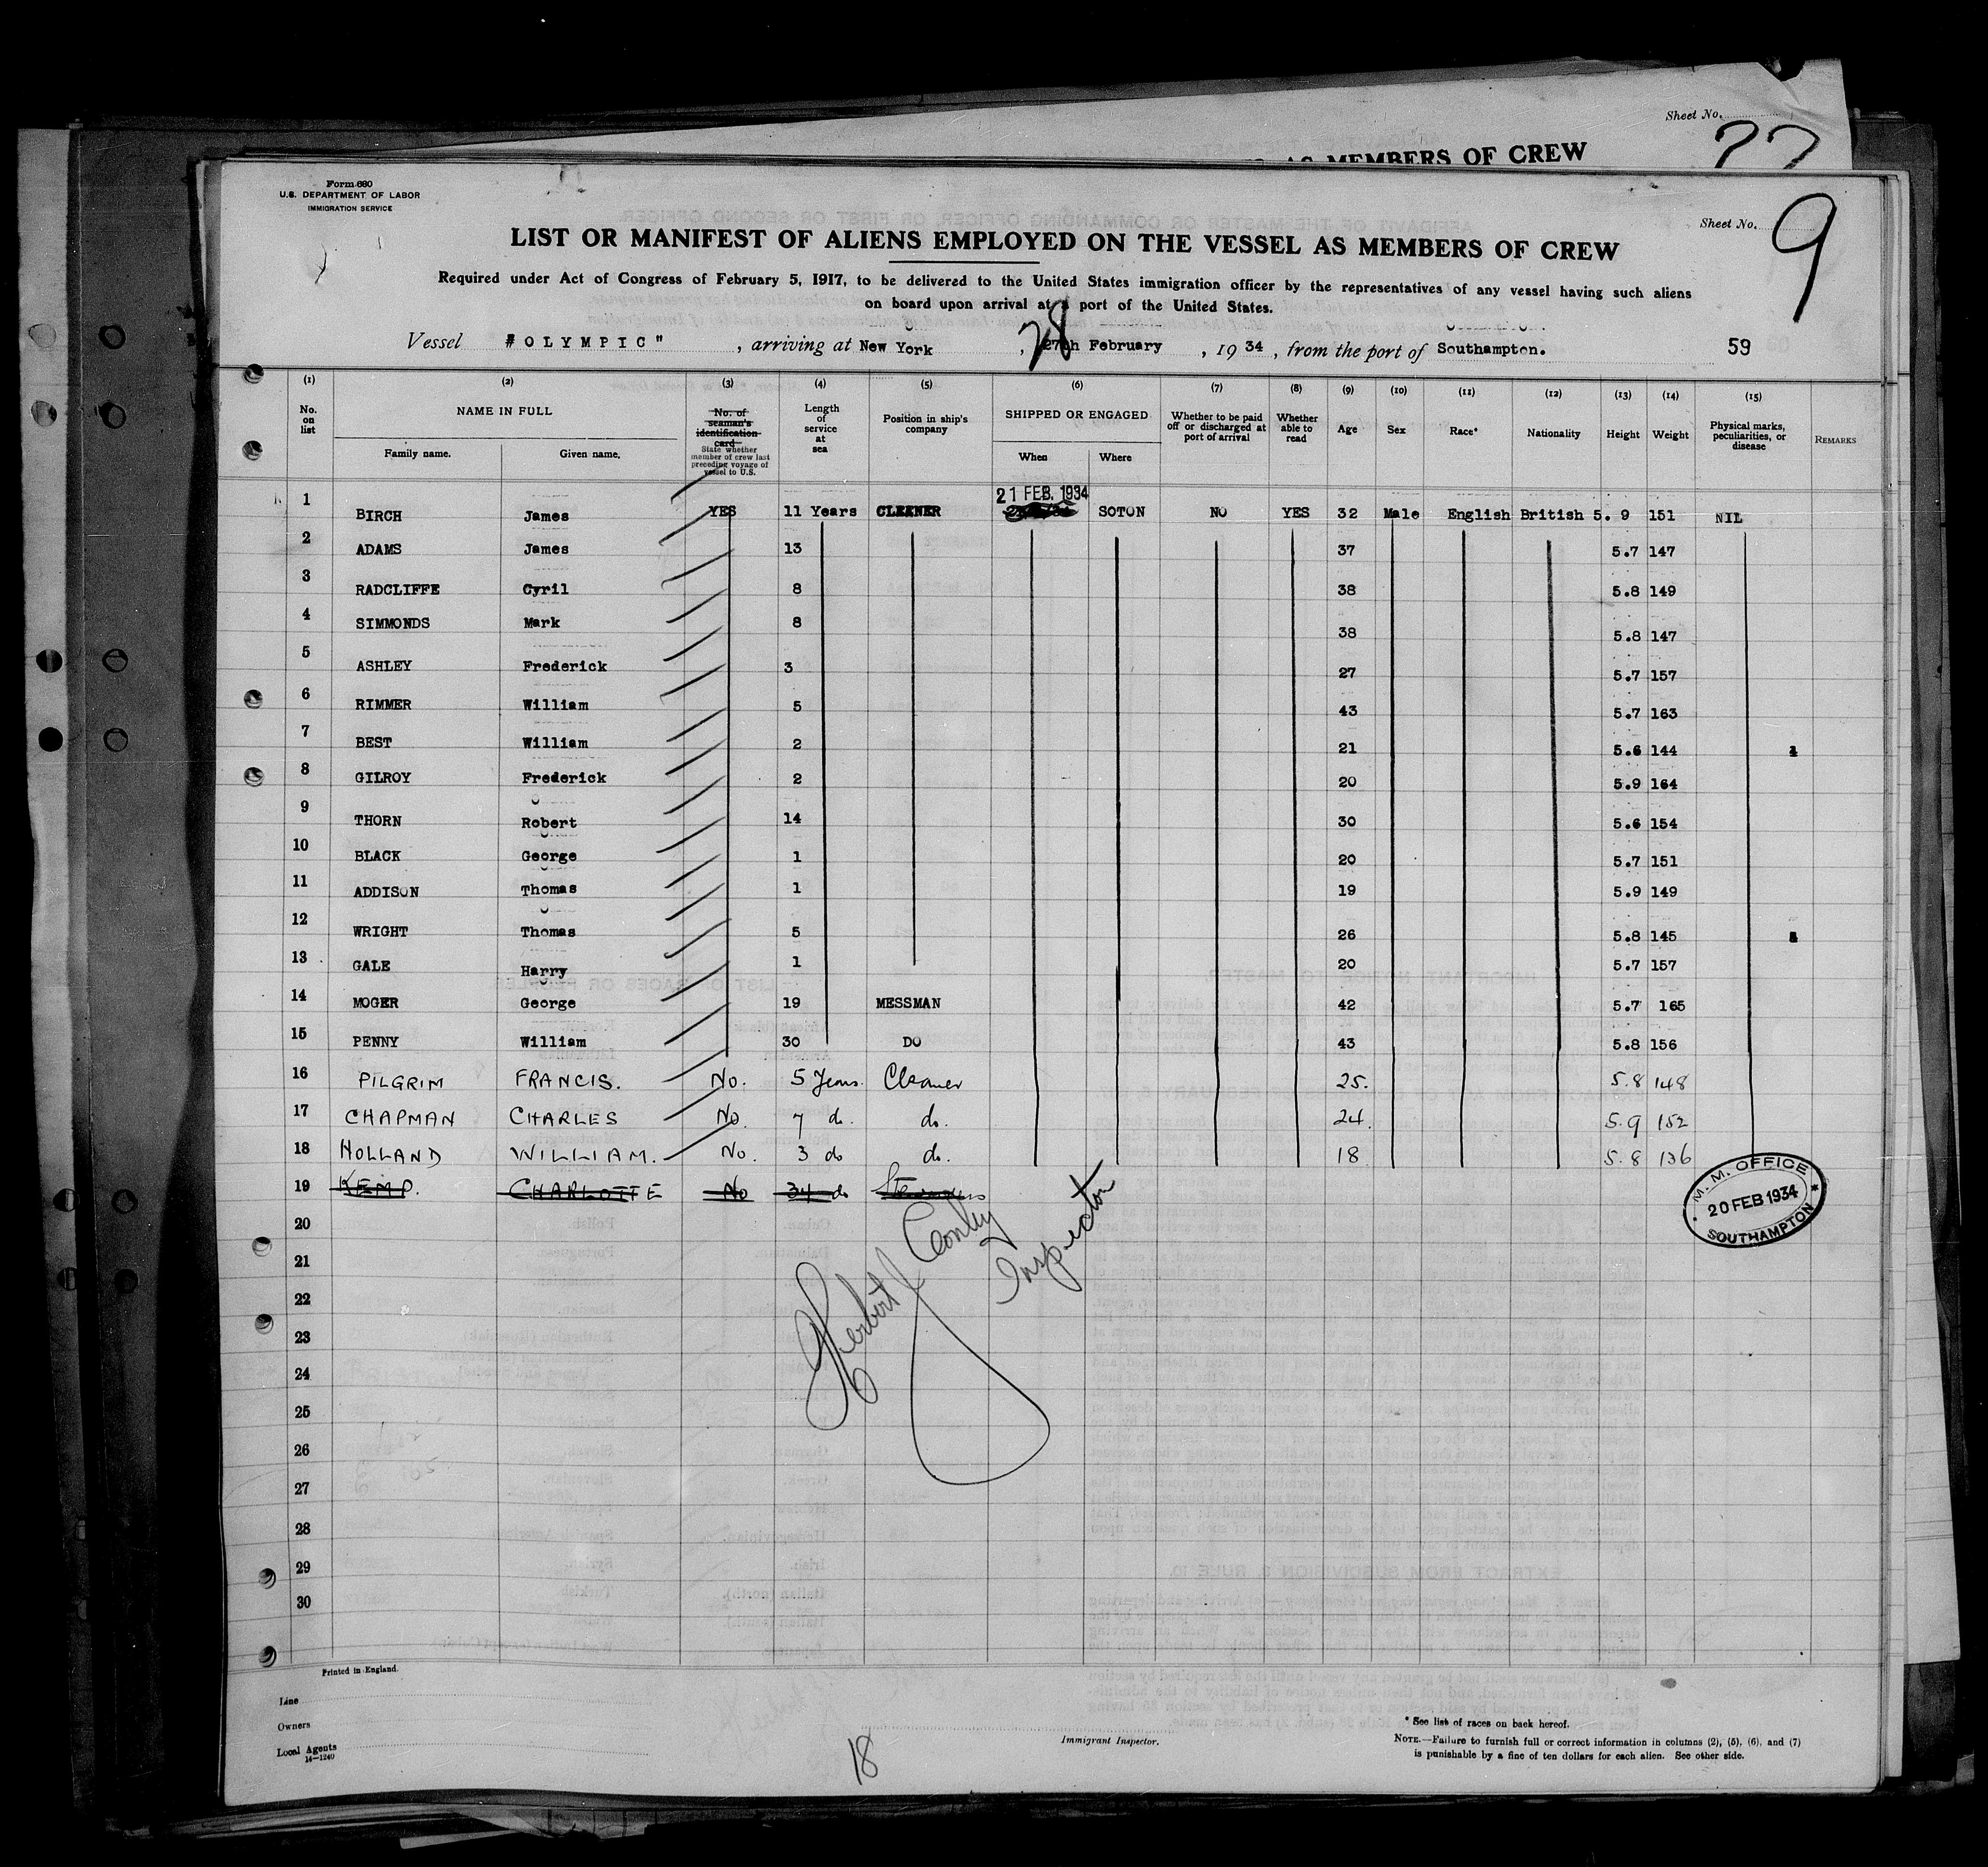 Sheet No.
AS MEMBERS OF CREW
Form 680
U.S. DEPARTMENT OF LABOR
IMMIGRATION SERVICE
Sheet No. 9
LIST OR MANIFEST OF ALIENS EMPLOYED ON THE VESSEL AS MEMBERS OF CREW
Required under Act of Congress of February 5, 1917, to be delivered to the United States immigration officer by the representatives of any vessel having such aliens
on board upon arrival at a port of the United States.
Vessel "OLYMPIC", arriving at New York, 28 27th February, 1934, from the port of Southampton. 59
(1) (2) (3) (4) (5) (6) (7) (8) (9) (10) (11) (12) (13) (14) (15)
No. on list
NAME IN FULL
Family name. Given name.
No. of seaman's identification card
State whether member of crew last preceding voyage of vessel to U.S.
Length of service at sea
Position in ship's company
SHIPPED OR ENGAGED
When Where
Whether to be paid off or discharged at port of arrival
Whether able to read
Age
Sex
Race*
Nationality
Height
Weight
Physical marks, peculiarities, or disease
REMARKS
21 FEB. 1934
1 BIRCH James YES 11 Years CLEANER SOTON NO YES 32 Male English British 5.9 151 NIL
2 ADAMS James 13 37 5.7 147
3 RADCLIFFE Cyril 8 38 5.8 149
4 SIMMONDS Mark 8 38 5.8 147
5 ASHLEY Frederick 3 27 5.7 157
6 RIMMER William 5 43 5.7 163
7 BEST William 2 21 5.6 144
8 GILROY Frederick 2 20 5.9 164
9 THORN Robert 14 30 5.6 154
10 BLACK George 1 20 5.7 151
11 ADDISON Thomas 1 19 5.9 149
12 WRIGHT Thomas 5 26 5.8 145
13 GALE Harry 1 20 5.7 157
14 MOGER George 19 MESSMAN 42 5.7 165
15 PENNY William 30 DO 43 5.8 156
16 PILGRIM FRANCIS. No. 5 Years. Cleaner 25. 5.8 148
17 CHAPMAN CHARLES No. 7 do. do. 24. 5.9 152
18 HOLLAND WILLIAM. No. 3 do do. 18 5.8 136
19 KEMP. CHARLOTTE No 34 do Stewardess
M. M. OFFICE
20 FEB 1934
SOUTHAMPTON
20
21
22
23
24
25
26
27
28
29
30
Herbert J Conley
Inspector
Printed in England.
Line
Owners
Local Agents
14—1240
18
Immigrant Inspector.
* See list of races on back hereof.
NOTE.—Failure to furnish full or correct information in columns (2), (5), (6), and (7)
is punishable by a fine of ten dollars for each alien. See other side.